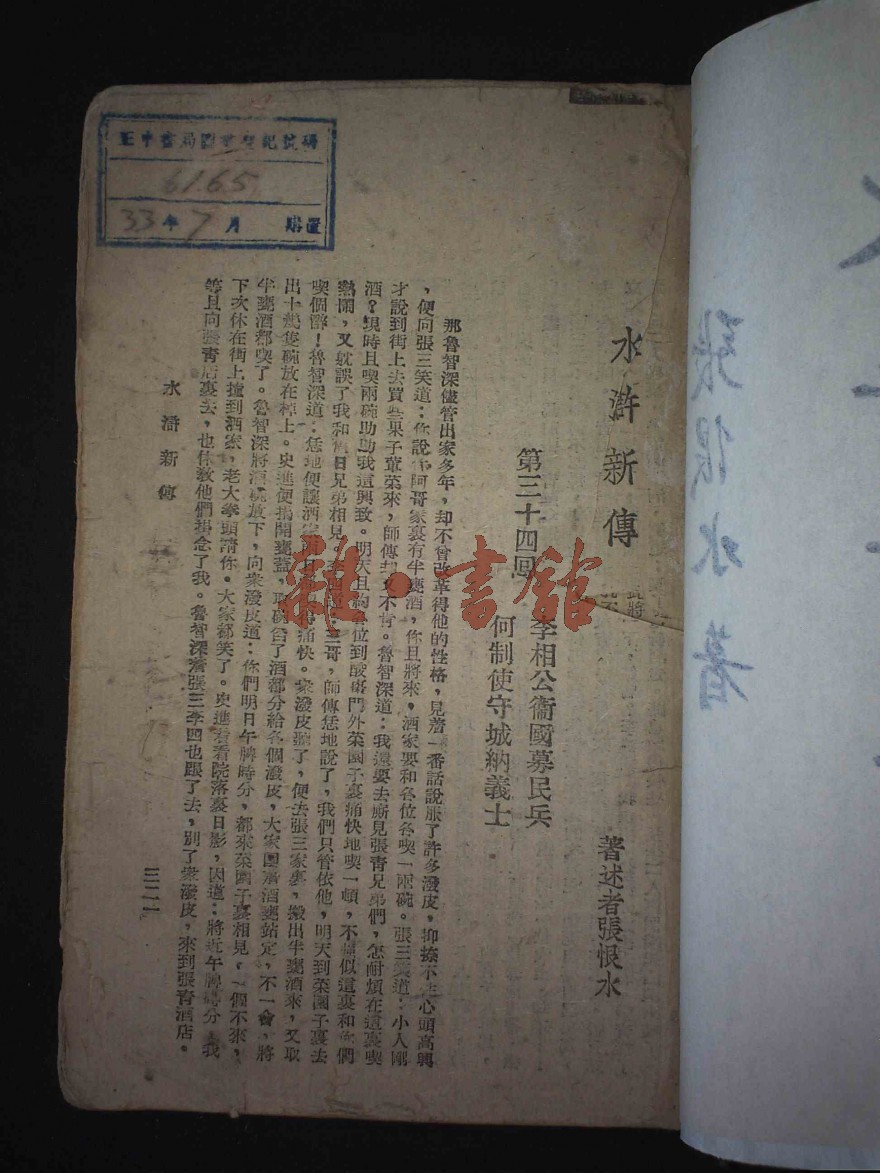 正中書局圖書登記號碼
6165
33年7月 購置
水滸新傳
著述者張恨水
第三十四回
李相公衞國募民兵
何制使守城納義士
那魯智深儘管出家多年，却不曾改革得他的性格，見着一番話說服了許多潑皮，抑捺不住心頭高興
，便向張三笑道：你說阿哥家裏有半甕酒，你且將來，洒家要和各位各喫一兩碗。張三笑道：小人剛
才說到街上去買些果子葷菜來，師傅却又不肯。魯智深道：我還要去廝見張青兄弟們，怎耐煩在這裏喫
酒？現時且喫兩碗助助我這興致。明天且約各位到酸棗門外菜園子裏痛快地喫一頓，不爭似這裏和你們
熱鬧，又躭誤了我和舊日兄弟相見。三哥，師傅恁地說了，我們只管依他，明天到菜園子裏去
喫個醉！魯智深道：恁地便讓洒家痛快。衆潑皮聽了，便去張三家裏，搬出半甕酒來，又取
出十幾隻碗放在棹上。史進便揭開甕蓋，取碗舀了酒都分給各個潑皮，大家圍着酒甕站定，不一會，將
半甕酒都喫了。魯智深將酒碗放下，向衆潑皮道：你們明日午牌時分，都來菜園子裏相見，一個不來，
下次休在街上撞到洒家，老大拳頭請你。大家都笑了。史進看看院落裏日影，因道：將近午牌時分，我
等且向張青店裏去，也休敎他們掛念了我。魯智深着張三李四也跟了去，別了衆潑皮，來到張青酒店。
水滸新傳
三二一
張恨水著
雜·書館